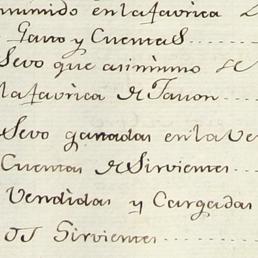 sumido en la favrica
Gavo y Cuentas
Sevo que asimismo se
la favrica de Javon
Sevo ganadas en la Ve
Cuentas de Sirvientes
Vendidas y Cargadas
os Sirvientes